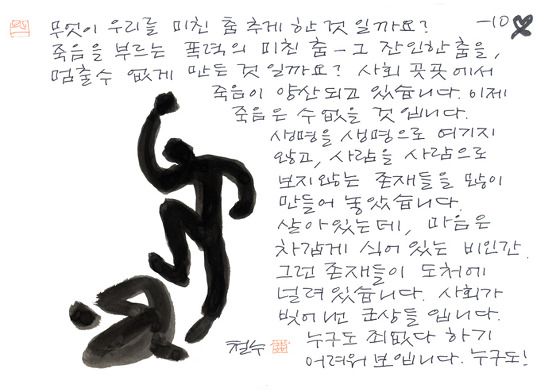 무엇이 우리를 미친 춤 추게 한 것 일까요? -10
죽음을 부르는 폭력의 미친 춤 - 그 잔인한 춤을,
멈출수 없게 만든 것 일까요? 사회 곳곳에서
죽음이 양산되고 있습니다. 이제
죽음은 수없을 것 입니다.
생명을 생명으로 여기지
않고, 사람을 사람으로
보지 않는 존재들을 많이
만들어 놓았습니다.
살아 있는데, 마음은
차갑게 식어 있는 비인간.
그런 존재들이 도처에
널려 있습니다. 사회가
빚어 낸 군상들 입니다.
누구도 죄없다 하기
어려워 보입니다. 누구도!
철수